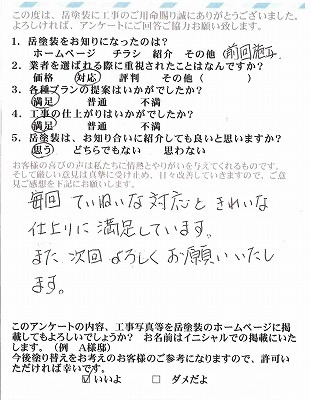 この度は、岳塗装に工事のご用命賜り誠にありがとうございました。
よろしければ、アンケートにご回答ご協力お願い致します。
1. 岳塗装をお知りになったのは?
ホームページ チラシ 紹介 その他(前回施工)
2. 業者を選ばれる際に重視されたことはなんですか?
価格 対応 評判 その他( )
3. 各種プランの提案はいかがでしたか?
満足 普通 不満
4. 工事の仕上がりはいかがでしたか?
満足 普通 不満
5. 岳塗装は、お知り合いに紹介しても良いと思いますか?
思う どちらでもない 思わない
お客様の喜びの声は私たちに情熱とやりがいを与えてくれるものです。
そして厳しい意見は真摯に受け止め、日々改善していきますので、ご意
見ご感想を下記にお願いします。
毎回 ていねいな対応ときれいな
仕上りに満足しています。
また次回よろしくお願いいたし
ます。
このアンケートの内容、工事写真等を岳塗装のホームページに掲
載してもよろしいでしょうか? お名前はイニシャルでの掲載にいた
します。(例 A様邸)
今後塗り替えをお考えのお客様のご参考になりますので、許可い
ただければ幸いです。
☑ いいよ □ ダメだよ